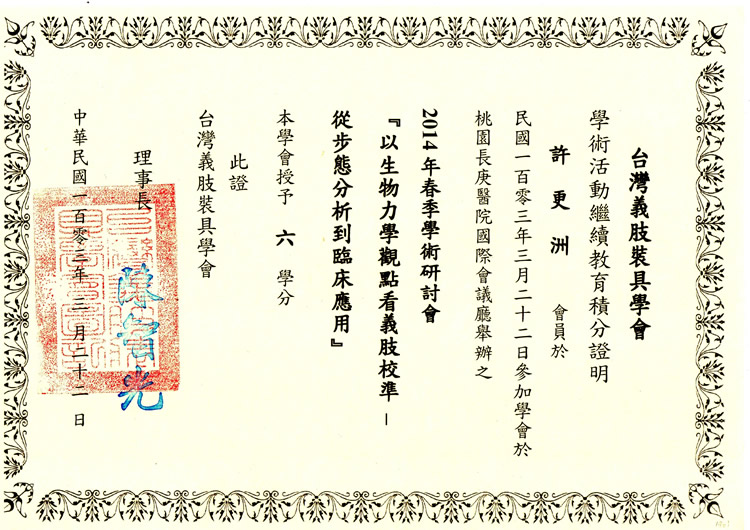 台灣義肢裝具學會
學術活動繼續教育積分證明
許更洲 會員於
民國一百零三年三月二十二日參加學會於
桃園長庚醫院國際會議廳舉辦之
2014年春季學術研討會
『以生物力學觀點看義肢校準－
從步態分析到臨床應用』
本學會授予 六 學分
此證
台灣義肢裝具學會
理事長
中華民國一百零三年三月二十二日